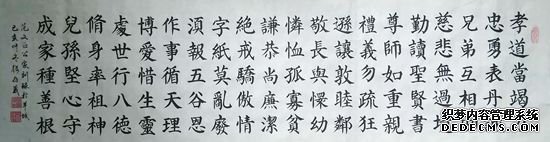 孝道當竭
忠勇表丹
兄弟互相
慈悲無過
勤讀聖賢書
尊師如重親
禮義勿疏狂
遜讓敦睦鄰
敬長與懷幼
憐恤孤寡貧
謙恭尚廉潔
絕戒驕傲情
字紙莫亂廢
須報五谷恩
作事循天理
博愛惜生靈
處世行八德
脩身率祖神
兒孫堅心守
成家種善根
范文正公家訓